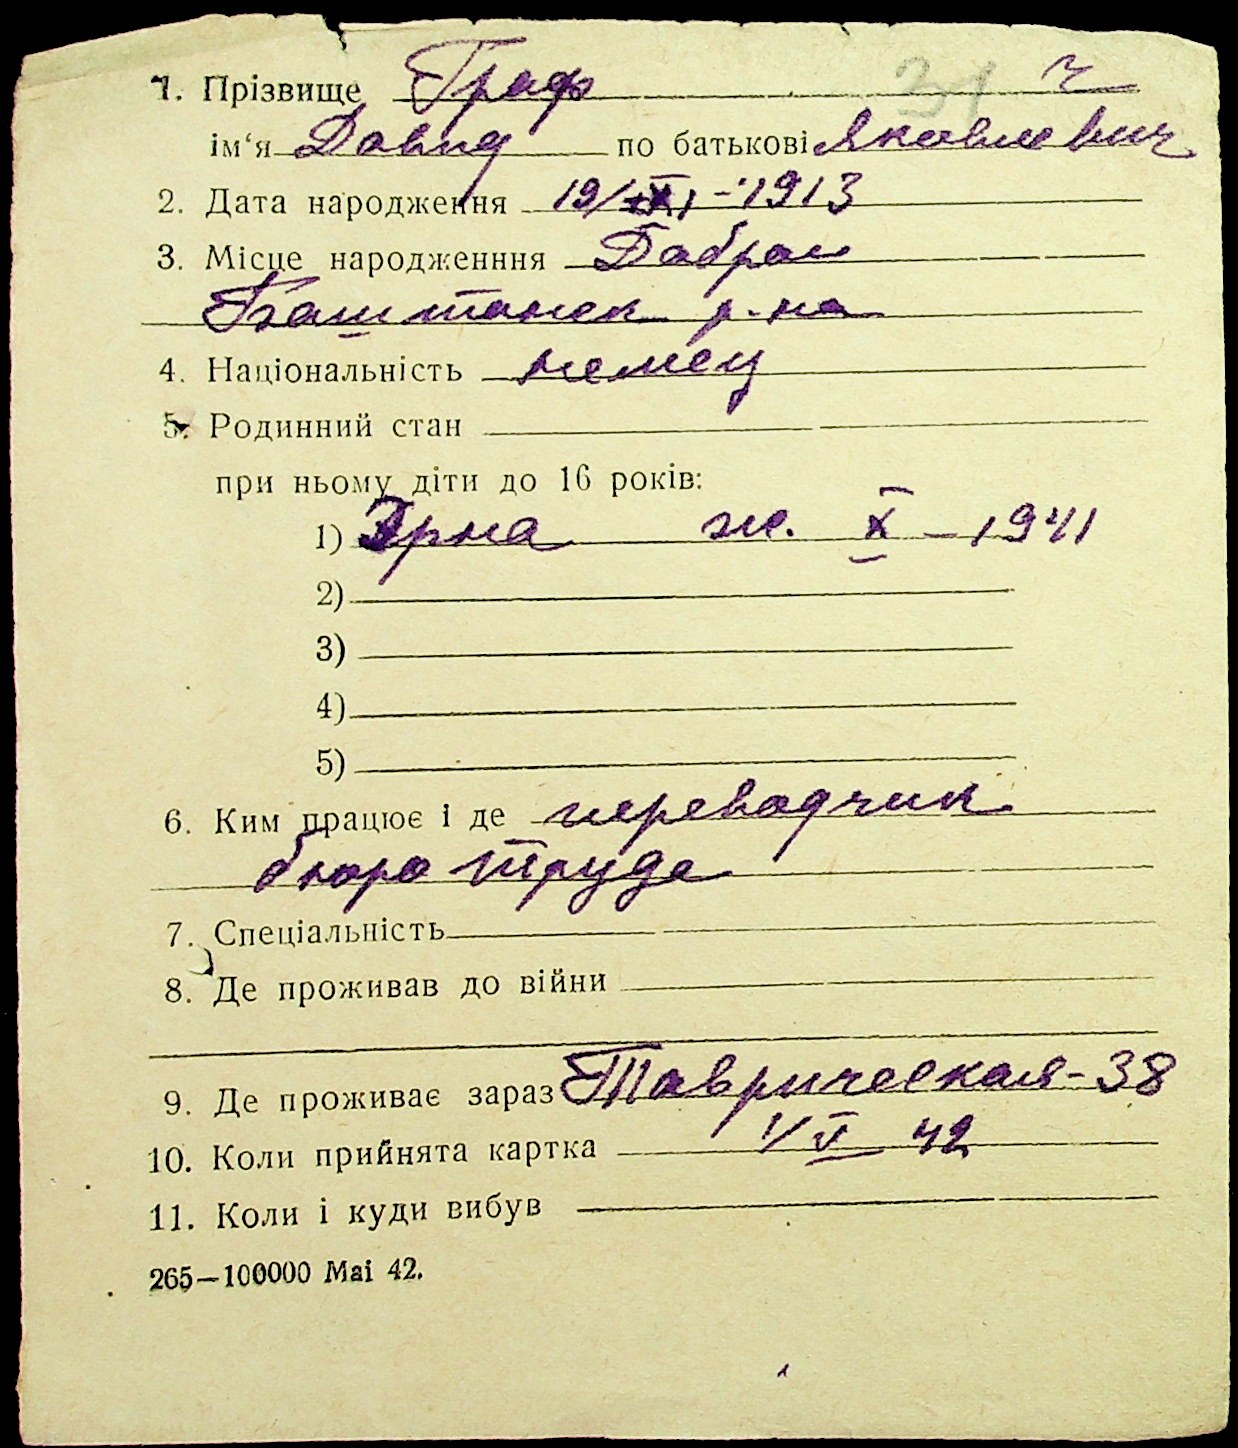 1. Прізвище Граф 31 ч
ім‘я Давид по батькові Яковлевич
2. Дата народження 19/XI - 1913
3. Місце народженння Добрая
Баштанск р-на
4. Національність немец
5. Родинний стан
при ньому діти до 16 років:
1) Эрна ж. X - 1941
2)
3)
4)
5)
6. Ким працює і де переводчик
бюро труда
7. Спеціальність
8. Де проживав до війни
9. Де проживає зараз Таврическая - 38
10. Коли прийнята картка 1/V 42
11. Коли і куди вибув
265—100000 Mai 42.